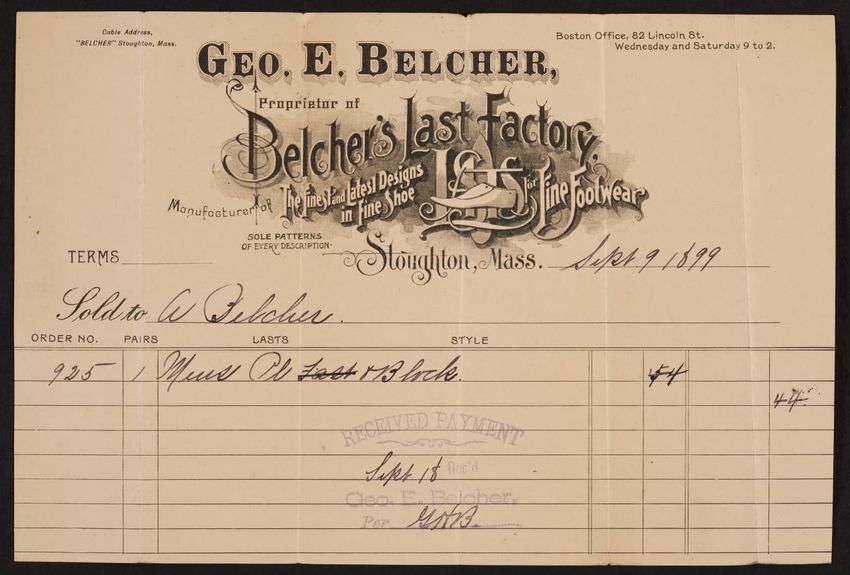 Cable Address,
"BELCHER" Stoughton, Mass.
Boston Office, 82 Lincoln St.
Wednesday and Saturday 9 to 2.
GEO. E. BELCHER,
Proprietor of
Belcher's Last Factory.
Manufacturer of The Finest and Latest Designs in Fine Shoe Lasts for Fine Footwear
SOLE PATTERNS
OF EVERY DESCRIPTION
Stoughton, Mass. Sept 9 1899
TERMS
Sold to A Belcher.
ORDER NO. PAIRS LASTS STYLE
925 1 Mens Pl Last & Block. 54
44
RECEIVED PAYMENT
Sept 18 Rec'd
Geo. E. Belcher,
Per GHB